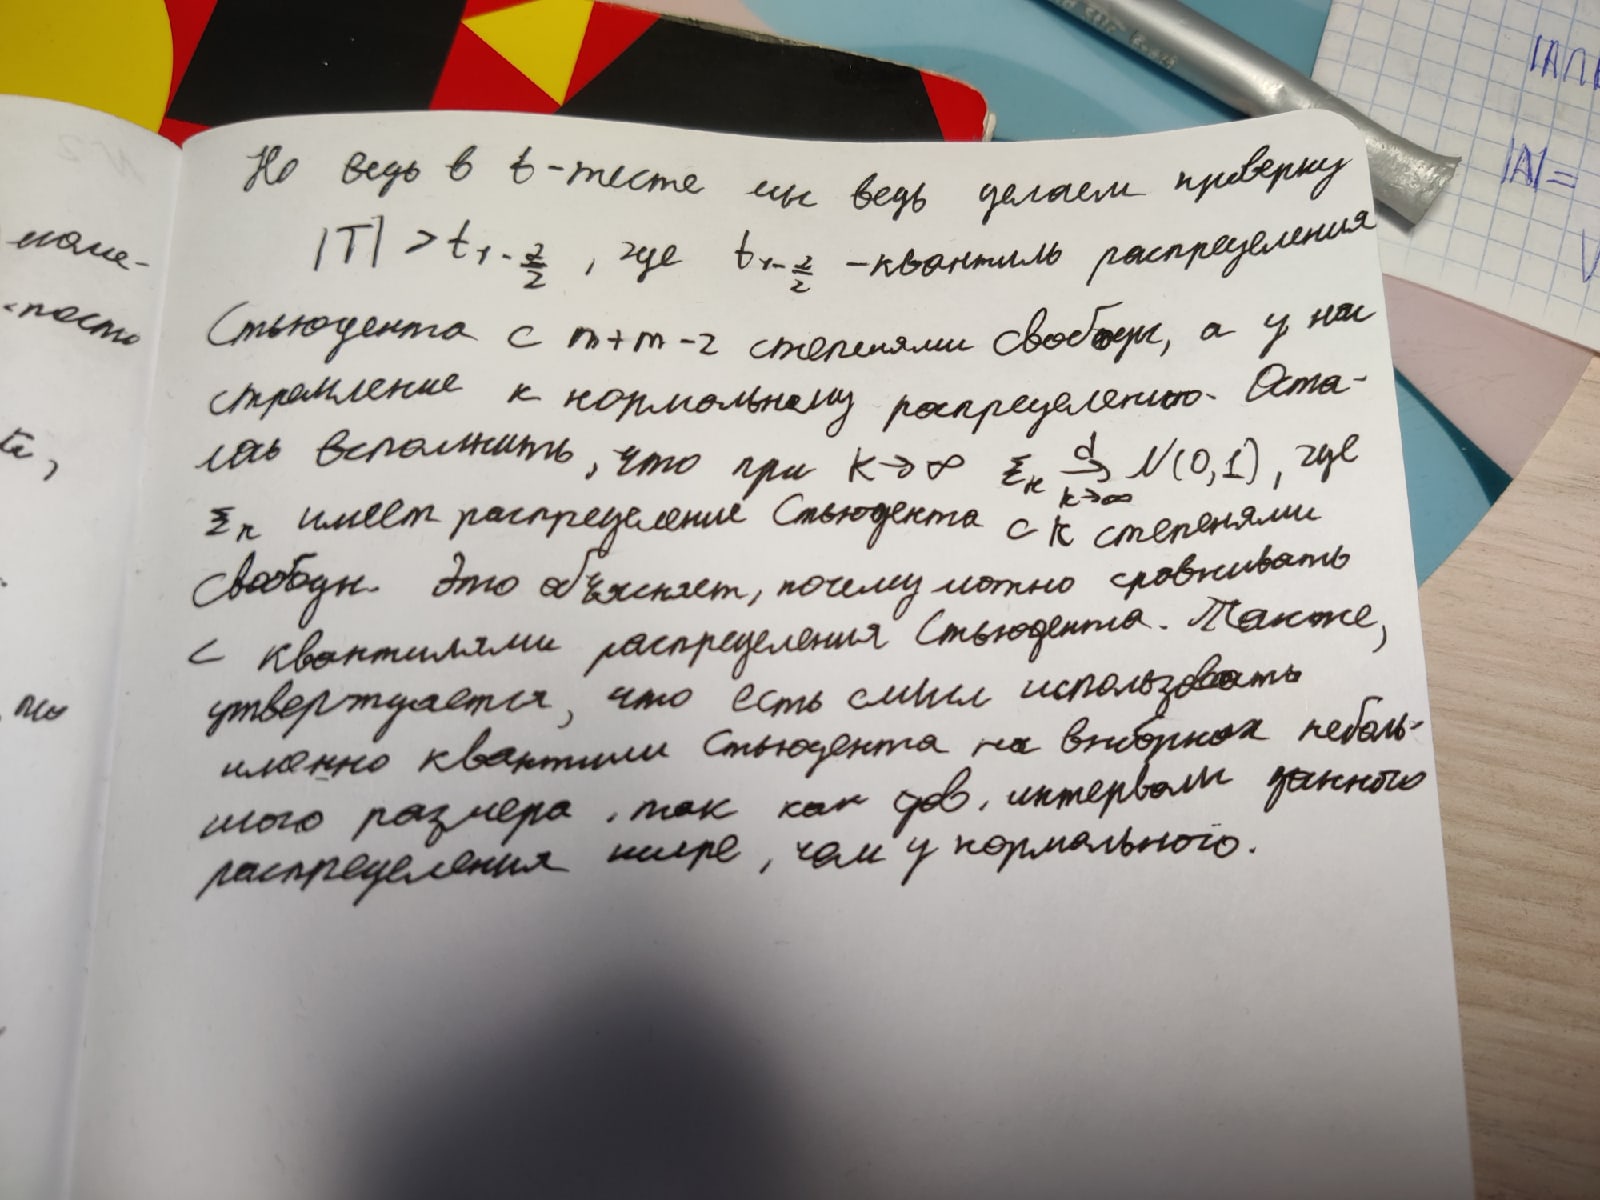 Но ведь в t-тесте мы ведь делаем проверку
|T| > t₁₋α/2, где t₁₋α/2 - квантиль распределения
Стьюдента с n+m-2 степенями свободы, а у нас
стремление к нормальному распределению. Оста-
лось вспомнить, что при k→∞ ξₖ d→ k→∞ N(0,1), где
ξₖ имеет распределение Стьюдента с k степенями
свободы. Это объясняет, почему можно сравнивать
с квантилями распределения Стьюдента. Также,
утверждается, что есть смысл использовать
именно квантили Стьюдента на выборках неболь-
шого размера, так как дов. интервалы данного
распределения шире, чем у нормального.
|A|=